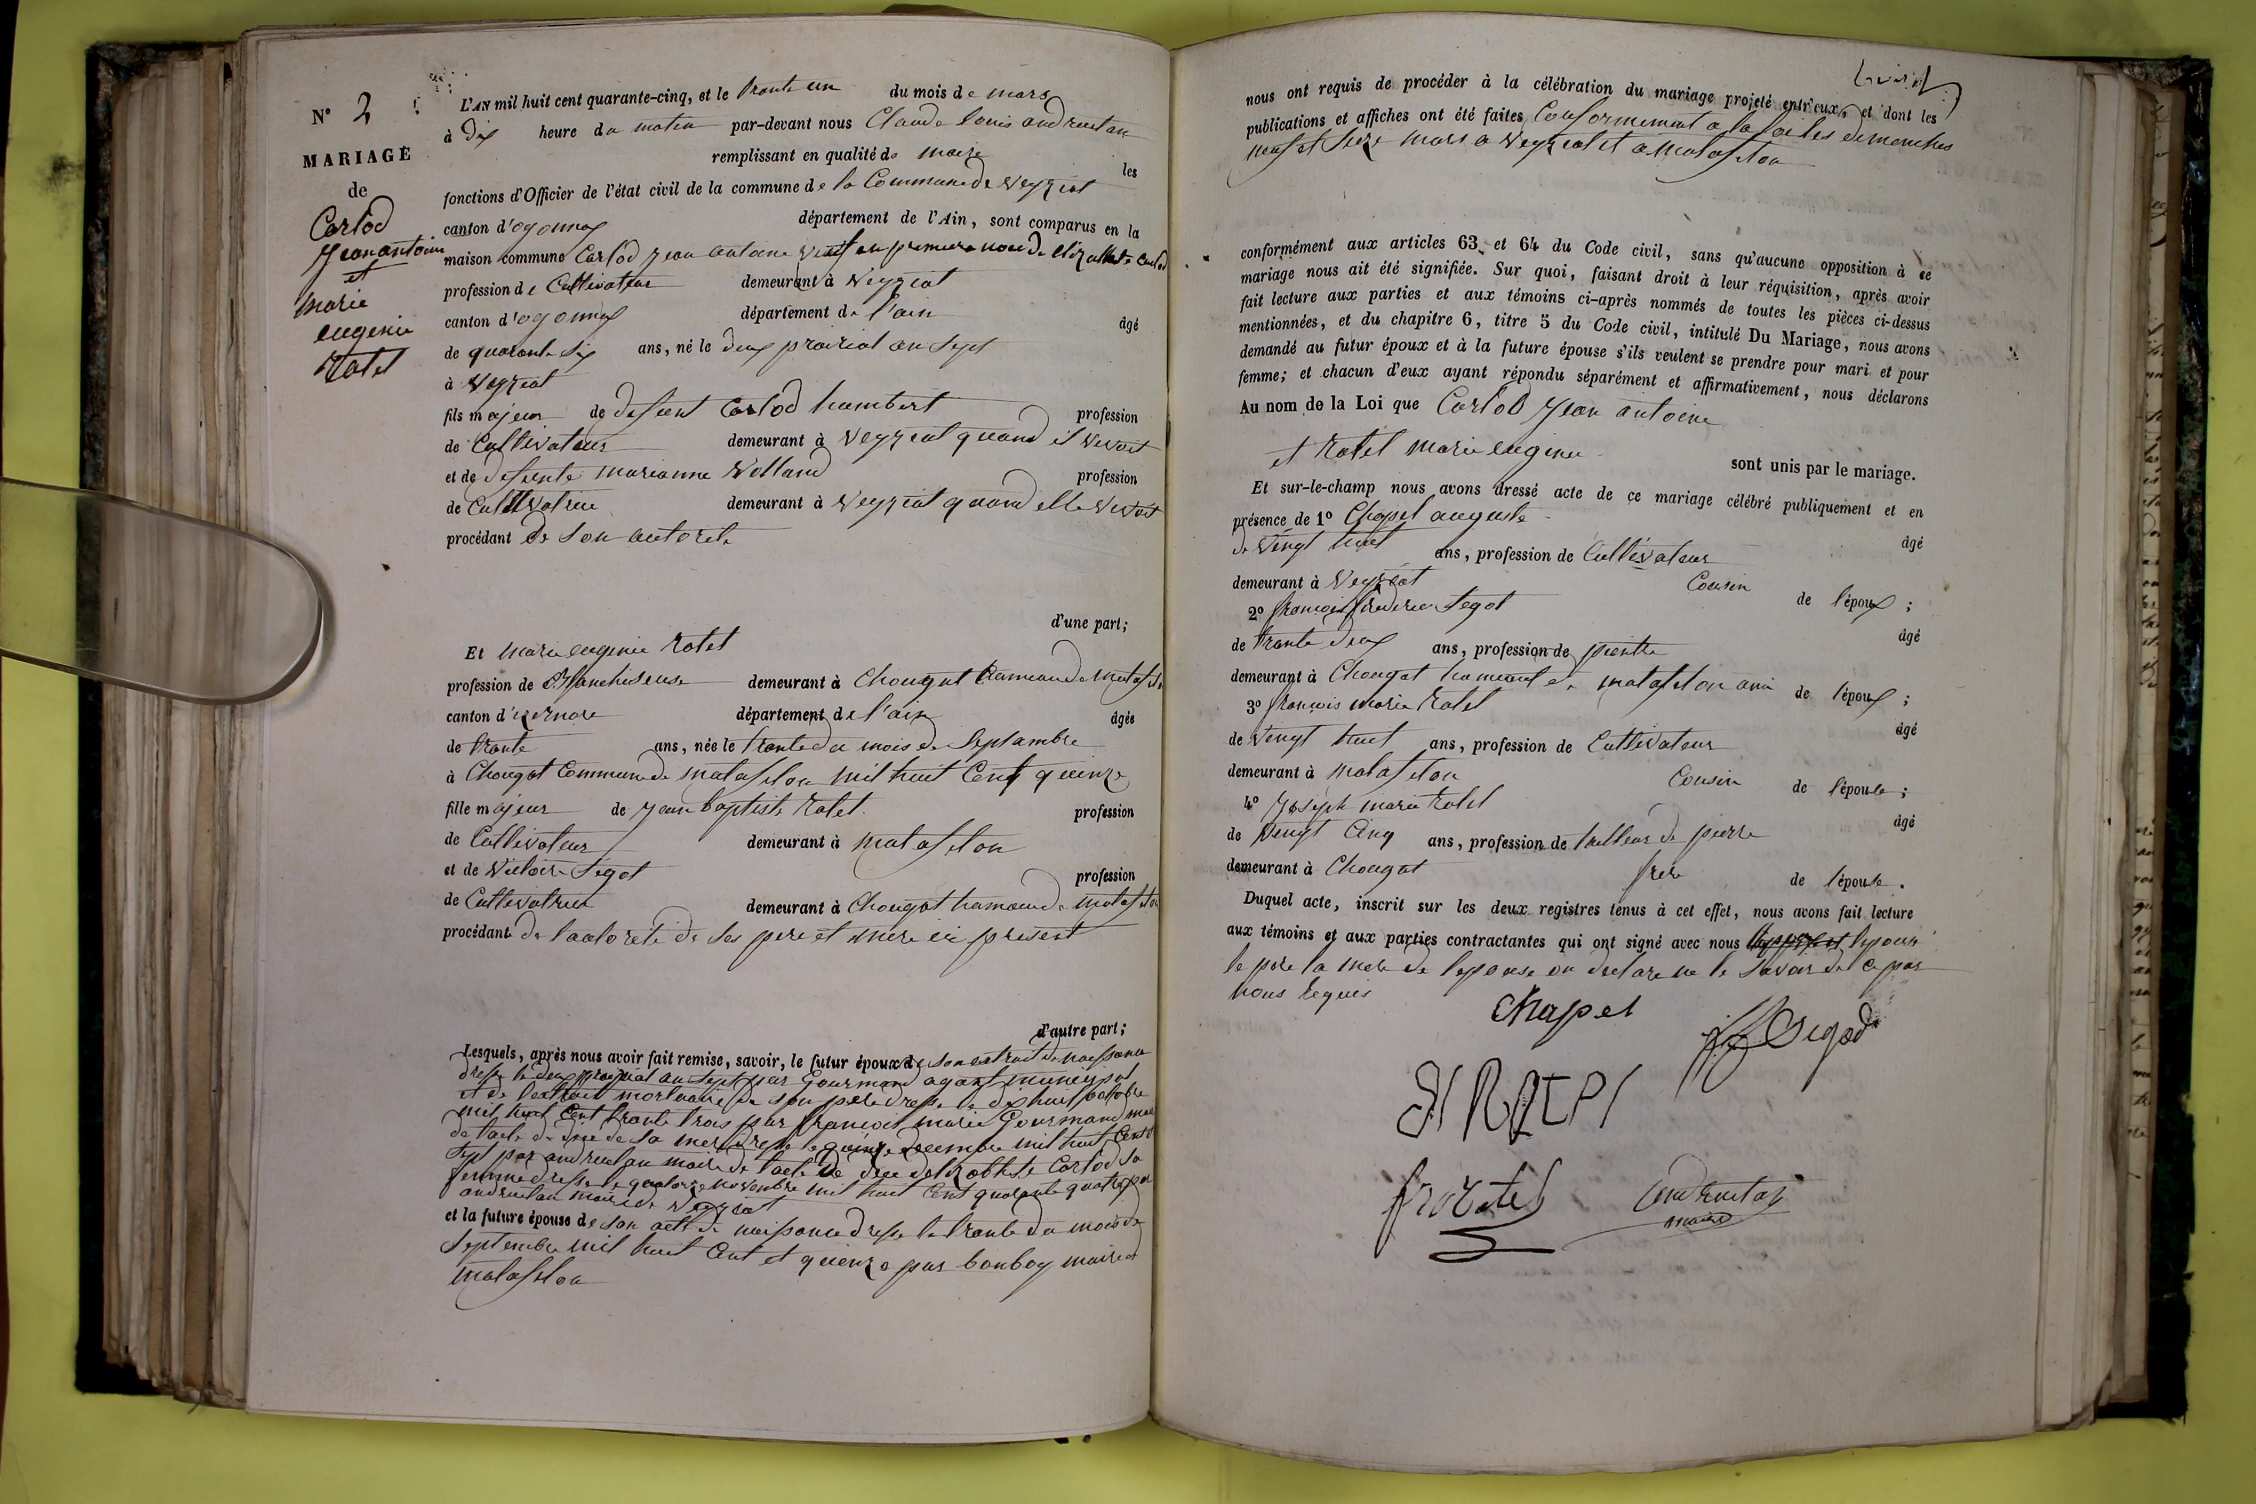 N° 2
MARIAGE
de
Carlod
Jean antoine
et
marie
eugenie
Ratel
L'AN mil huit cent quarante-cinq, et le trante un du mois de mars
à dix heure du matin par-devant nous Claude louis andruetan
remplissant en qualité de maire les
fonctions d'Officier de l'état civil de la commune de la Commune de Veyziat
canton d'oyonnax département de l'Ain, sont comparus en la
maison commune Carlod jean antoine veuf en premiere noce de Elizabhete Carlod
profession de Cultivateur demeurant à Veyziat
canton d'oyonnax département de l'ain âgé
de quarante six ans, né le deux prairial an sept
à Veyziat
fils majeur de defunt Carlod humbert profession
de Cultivateur demeurant à Veyziat quand il vivait
et de defunte marianne Volland profession
de Cultivatrice demeurant à Veyziat quand elle vivait
procédant de son autorite
d'une part;
Et marie eugenie Ratel
profession de Blanchiseuse demeurant à Chougat hameau de Matafelon
canton d'izernore département de l'ain âgée
de trante ans, née le trante du mois de Septambre
à Chougat Commune de matafelon mil huit Cent quinze
fille majeur de jean baptiste Ratel profession
de Cultivateur demeurant à matafelon
et de Victoire Segot profession
de Cultivatrice demeurant à Chougat hameau de matafelon
procédant de l'autorité de ses pere et mere ici present
d'autre part;
Lesquels, après nous avoir fait remise, savoir, le futur époux de son extrait de naissance
dressé le deux prairial an sept par Gourmand agant municipal
et de l'extrait mortuaire de son pere dressé le dix huit octobre
mil huit Cent trante trois par francois marie Gourmand maire
de l'acte de dece de sa mere dressé le quinze decembre mil huit Cent
sept par andruetan maire de l'acte de dece delizabhete Carlod sa
femme dressé le quatorze novembre mil huit Cent quarante quatre par
andruetan maire de Veyziat
et la future épouse de son acte de naissance dressé le trante du mois de
Septembre mil huit Cent et quinze par bonboy maire de
matafelon
nous ont requis de procéder à la célébration du mariage projeté entr'eux, et dont les
publications et affiches ont été faites Conformement a la loi les dimanches
neuf et seize mars a Veyziat et a Matafelon
conformément aux articles 63 et 64 du Code civil, sans qu'aucune opposition à ce
mariage nous ait été signifiée. Sur quoi, faisant droit à leur réquisition, après avoir
fait lecture aux parties et aux témoins ci-après nommés de toutes les pièces ci-dessus
mentionnées, et du chapitre 6, titre 5 du Code civil, intitulé Du Mariage, nous avons
demandé au futur époux et à la future épouse s'ils veulent se prendre pour mari et pour
femme; et chacun d'eux ayant répondu séparément et affirmativement, nous déclarons
Au nom de la Loi que Carlod jean antoine
et Ratel marie eugenie
sont unis par le mariage.
Et sur-le-champ nous avons dressé acte de ce mariage célébré publiquement et en
présence de 1° Chapel auguste âgé
de vingt huit ans, profession de Cultivateur
demeurant à Veyziat Cousin de l'époux;
2° francois frederic Segot âgé
de trante deux ans, profession de peintre
demeurant à Chougat hameau de matafelon ami de l'époux;
3° francois marie Ratel âgé
de vingt huit ans, profession de Cultivateur
demeurant à matafelon Cousin de l'épouse;
4° Joseph marie Ratel âgé
de vingt Cinq ans, profession de tailleur de pierre
demeurant à Chougat frere de l'épouse.
Duquel acte, inscrit sur les deux registres tenus à cet effet, nous avons fait lecture
aux témoins et aux parties contractantes qui ont signé avec nous lepoux
le pere la mere de lepouse on declare ne le savoir de ce par
nous requis
Chapel
ff Segod
andruetan
maire